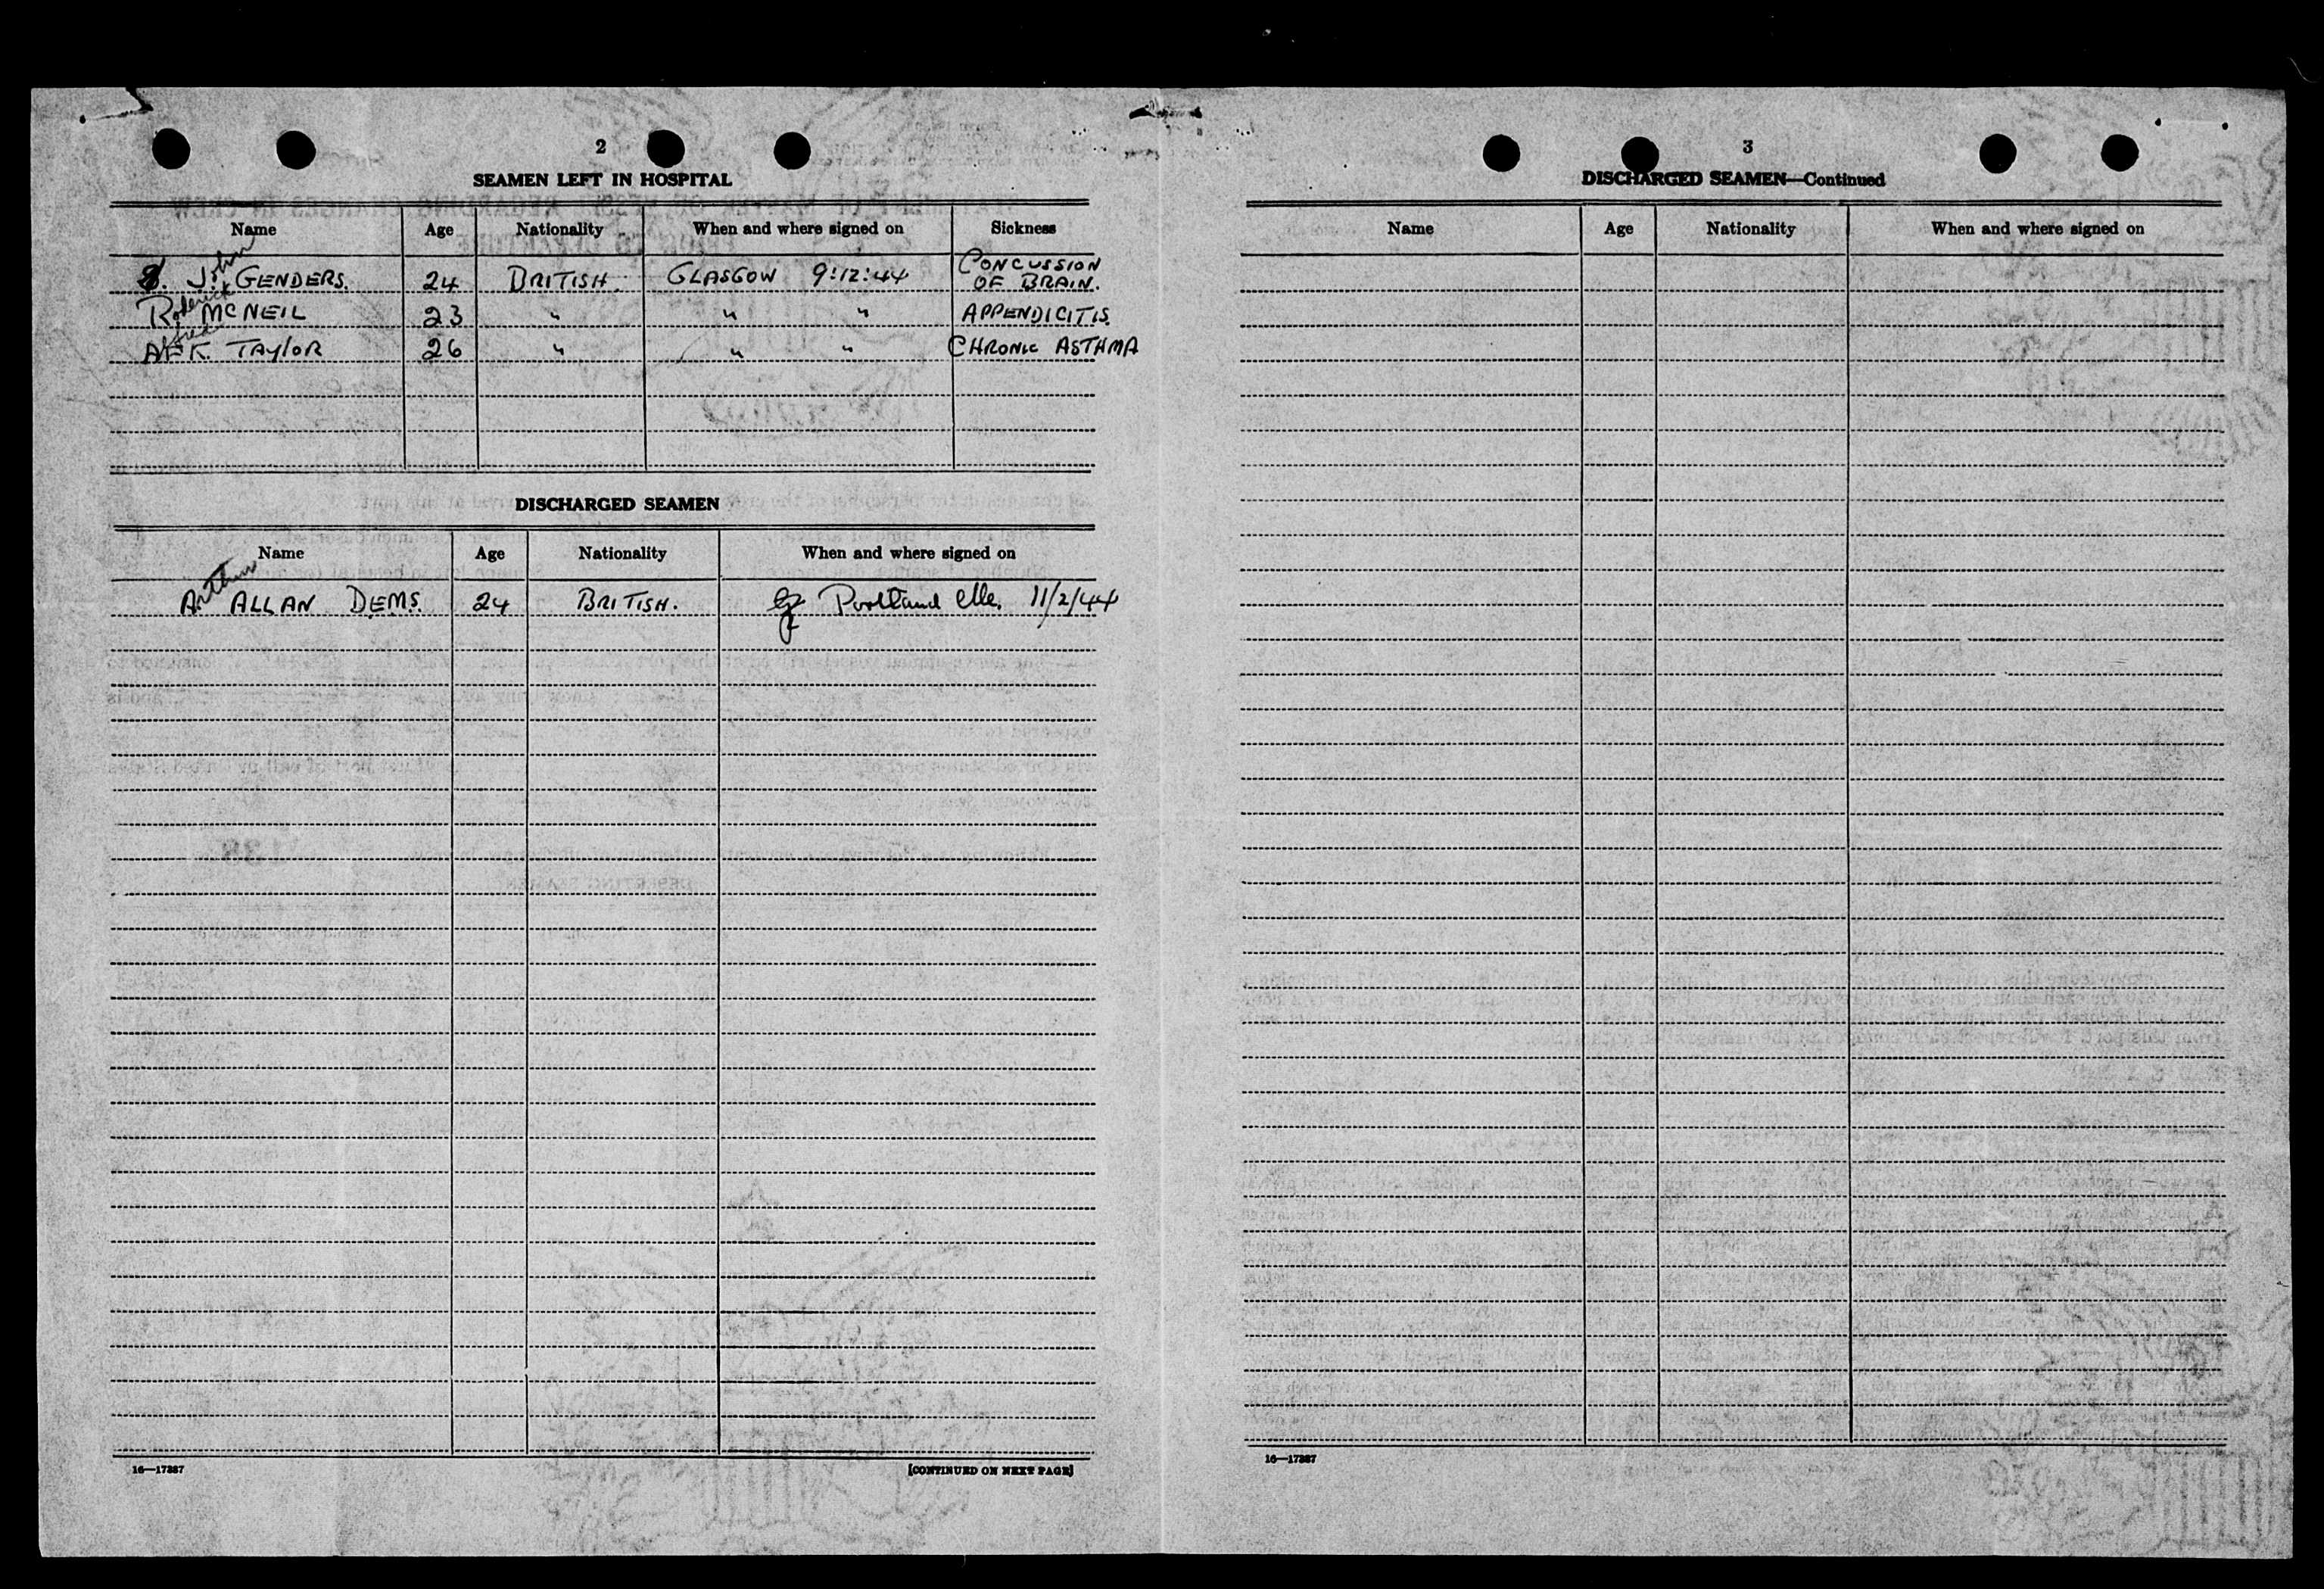 2
SEAMEN LEFT IN HOSPITAL
Name Age Nationality When and where signed on Sickness
John
J. GENDERS. 24 BRITISH. GLASGOW 9:12:44 CONCUSSION OF BRAIN.
Roderick MCNEIL 23 " " " APPENDICITIS.
A K. TAYLOR 26 " " " CHRONIC ASTHMA
DISCHARGED SEAMEN
Name Age Nationality When and where signed on
Arthur
A. ALLAN DEMS. 24 BRITISH. Portland Me. 11/2/44
16—17387 [CONTINUED ON NEXT PAGE]
3
DISCHARGED SEAMEN—Continued
Name Age Nationality When and where signed on
16—17387